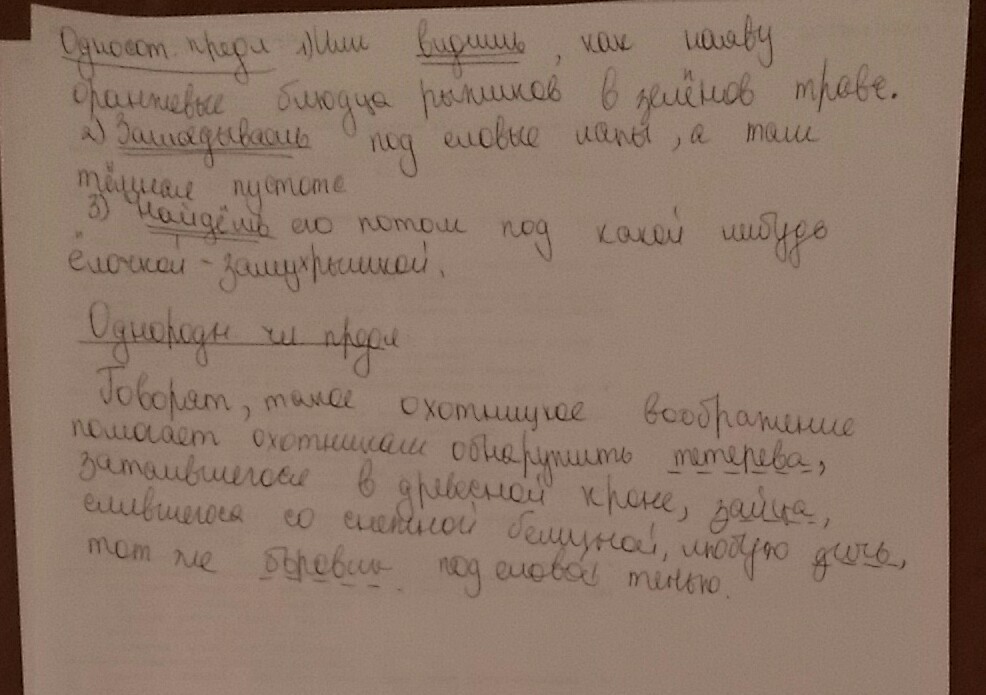 Односст. предл 1) Или видишь, как наяву
оранжевые блюдца рыжиков в зелёнов траве.
2) Заглядываешь под еловые лапы, а там
тёмная пустоте
3) Найдёшь его потом под какой нибудь
ёлочкой - замухрышкой.
Однородн чл предл
Говорят, такое охотницкое воображение
помогает охотникам обнаружить тетерева,
затаившегося в древесной кроне, зайца,
слившегося со снежной белизной, любую дичь,
тот же боровик под еловой тенью.